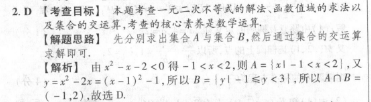 2. D 【考查目标】 本题考查一元二次不等式的解法、函数值域的求法以
及集合的交运算,考查的核心素养是数学运算.
【解题思路】 先分别求出集合A与集合B,然后通过集合的交运算
求解即可.
【解析】 由x²-x-2<0得-1<x<2,则A={x|-1<x<2},又
y=x²-2x=(x-1)²-1,所以B={y|-1≤y<3},所以A∩B=
(-1,2),故选D.